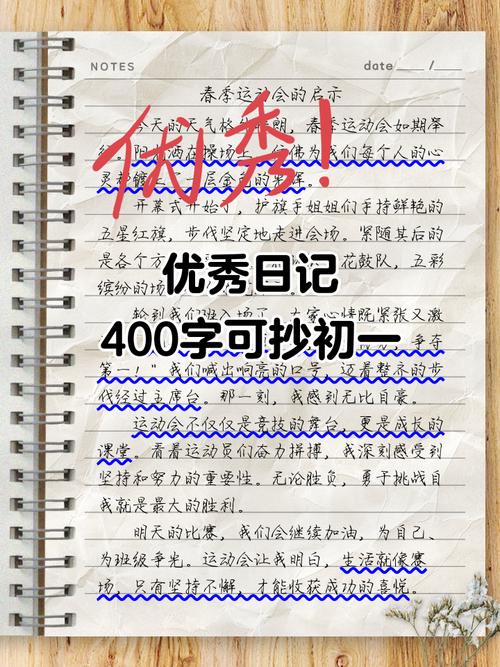 NOTES
date____/__
春季运动会的启示
优秀!
今天的天气格外晴朗，春季运动会如期举
行。阳光洒在操场上，仿佛为我们每个人的心
灵都镀上了一层金色的光辉。
开幕式开始了，护旗手姐姐们手持鲜艳的
五星红旗，步伐坚定地走进会场。紧随其后的
是各个方 花鼓队，五彩
缤纷的场
优秀日记
400字可抄初一
轮到我们班入场了，大家心情既紧张又激
争夺
第一！"我们喊出响亮的口号，迈着整齐的步
伐经过主席台。那一刻，我感到无比自豪。
运动会不仅仅是竞技的舞台，更是成长的
课堂。看着运动员们奋力拼搏，我深刻感受到
坚持和努力的重要性。无论胜负，勇于挑战自
我就是最大的胜利。
明天的比赛，我们会继续加油，为自己、
为班级争光。运动会让我明白，生活就像赛
场，只有坚持不懈，才能收获成功的喜悦。